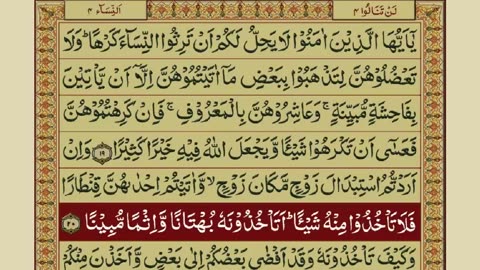 لَنْ تَنَالُوا ٤
اَلنِّسَآء ٤
يٰۤاَيُّهَا الَّذِيْنَ اٰمَنُوْا لَا يَحِلُّ لَكُمْ اَنْ تَرِثُوا النِّسَآءَ كَرْهًا ؕ وَلَا
تَعْضُلُوْهُنَّ لِتَذْهَبُوْا بِبَعْضِ مَاۤ اٰتَيْتُمُوْهُنَّ اِلَّاۤ اَنْ يَّاْتِيْنَ
بِفَاحِشَةٍ مُّبَيِّنَةٍ ۚ وَعَاشِرُوْهُنَّ بِالْمَعْرُوْفِ ۚ فَاِنْ كَرِهْتُمُوْهُنَّ
فَعَسٰۤى اَنْ تَكْرَهُوْا شَيْـًٔا وَّيَجْعَلَ اللّٰهُ فِيْهِ خَيْرًا كَثِيْرًا ۝۱۹ وَاِنْ
اَرَدْتُّمُ اسْتِبْدَالَ زَوْجٍ مَّكَانَ زَوْجٍ ۙ وَّاٰتَيْتُمْ اِحْدٰىهُنَّ قِنْطَارًا
فَلَا تَاْخُذُوْا مِنْهُ شَيْـًٔا ؕ اَتَاْخُذُوْنَهٗ بُهْتَانًا وَّاِثْمًا مُّبِيْنًا ۝۲۰
وَكَيْفَ تَاْخُذُوْنَهٗ وَقَدْ اَفْضٰى بَعْضُكُمْ اِلٰى بَعْضٍ وَّاَخَذْنَ مِنْكُمْ